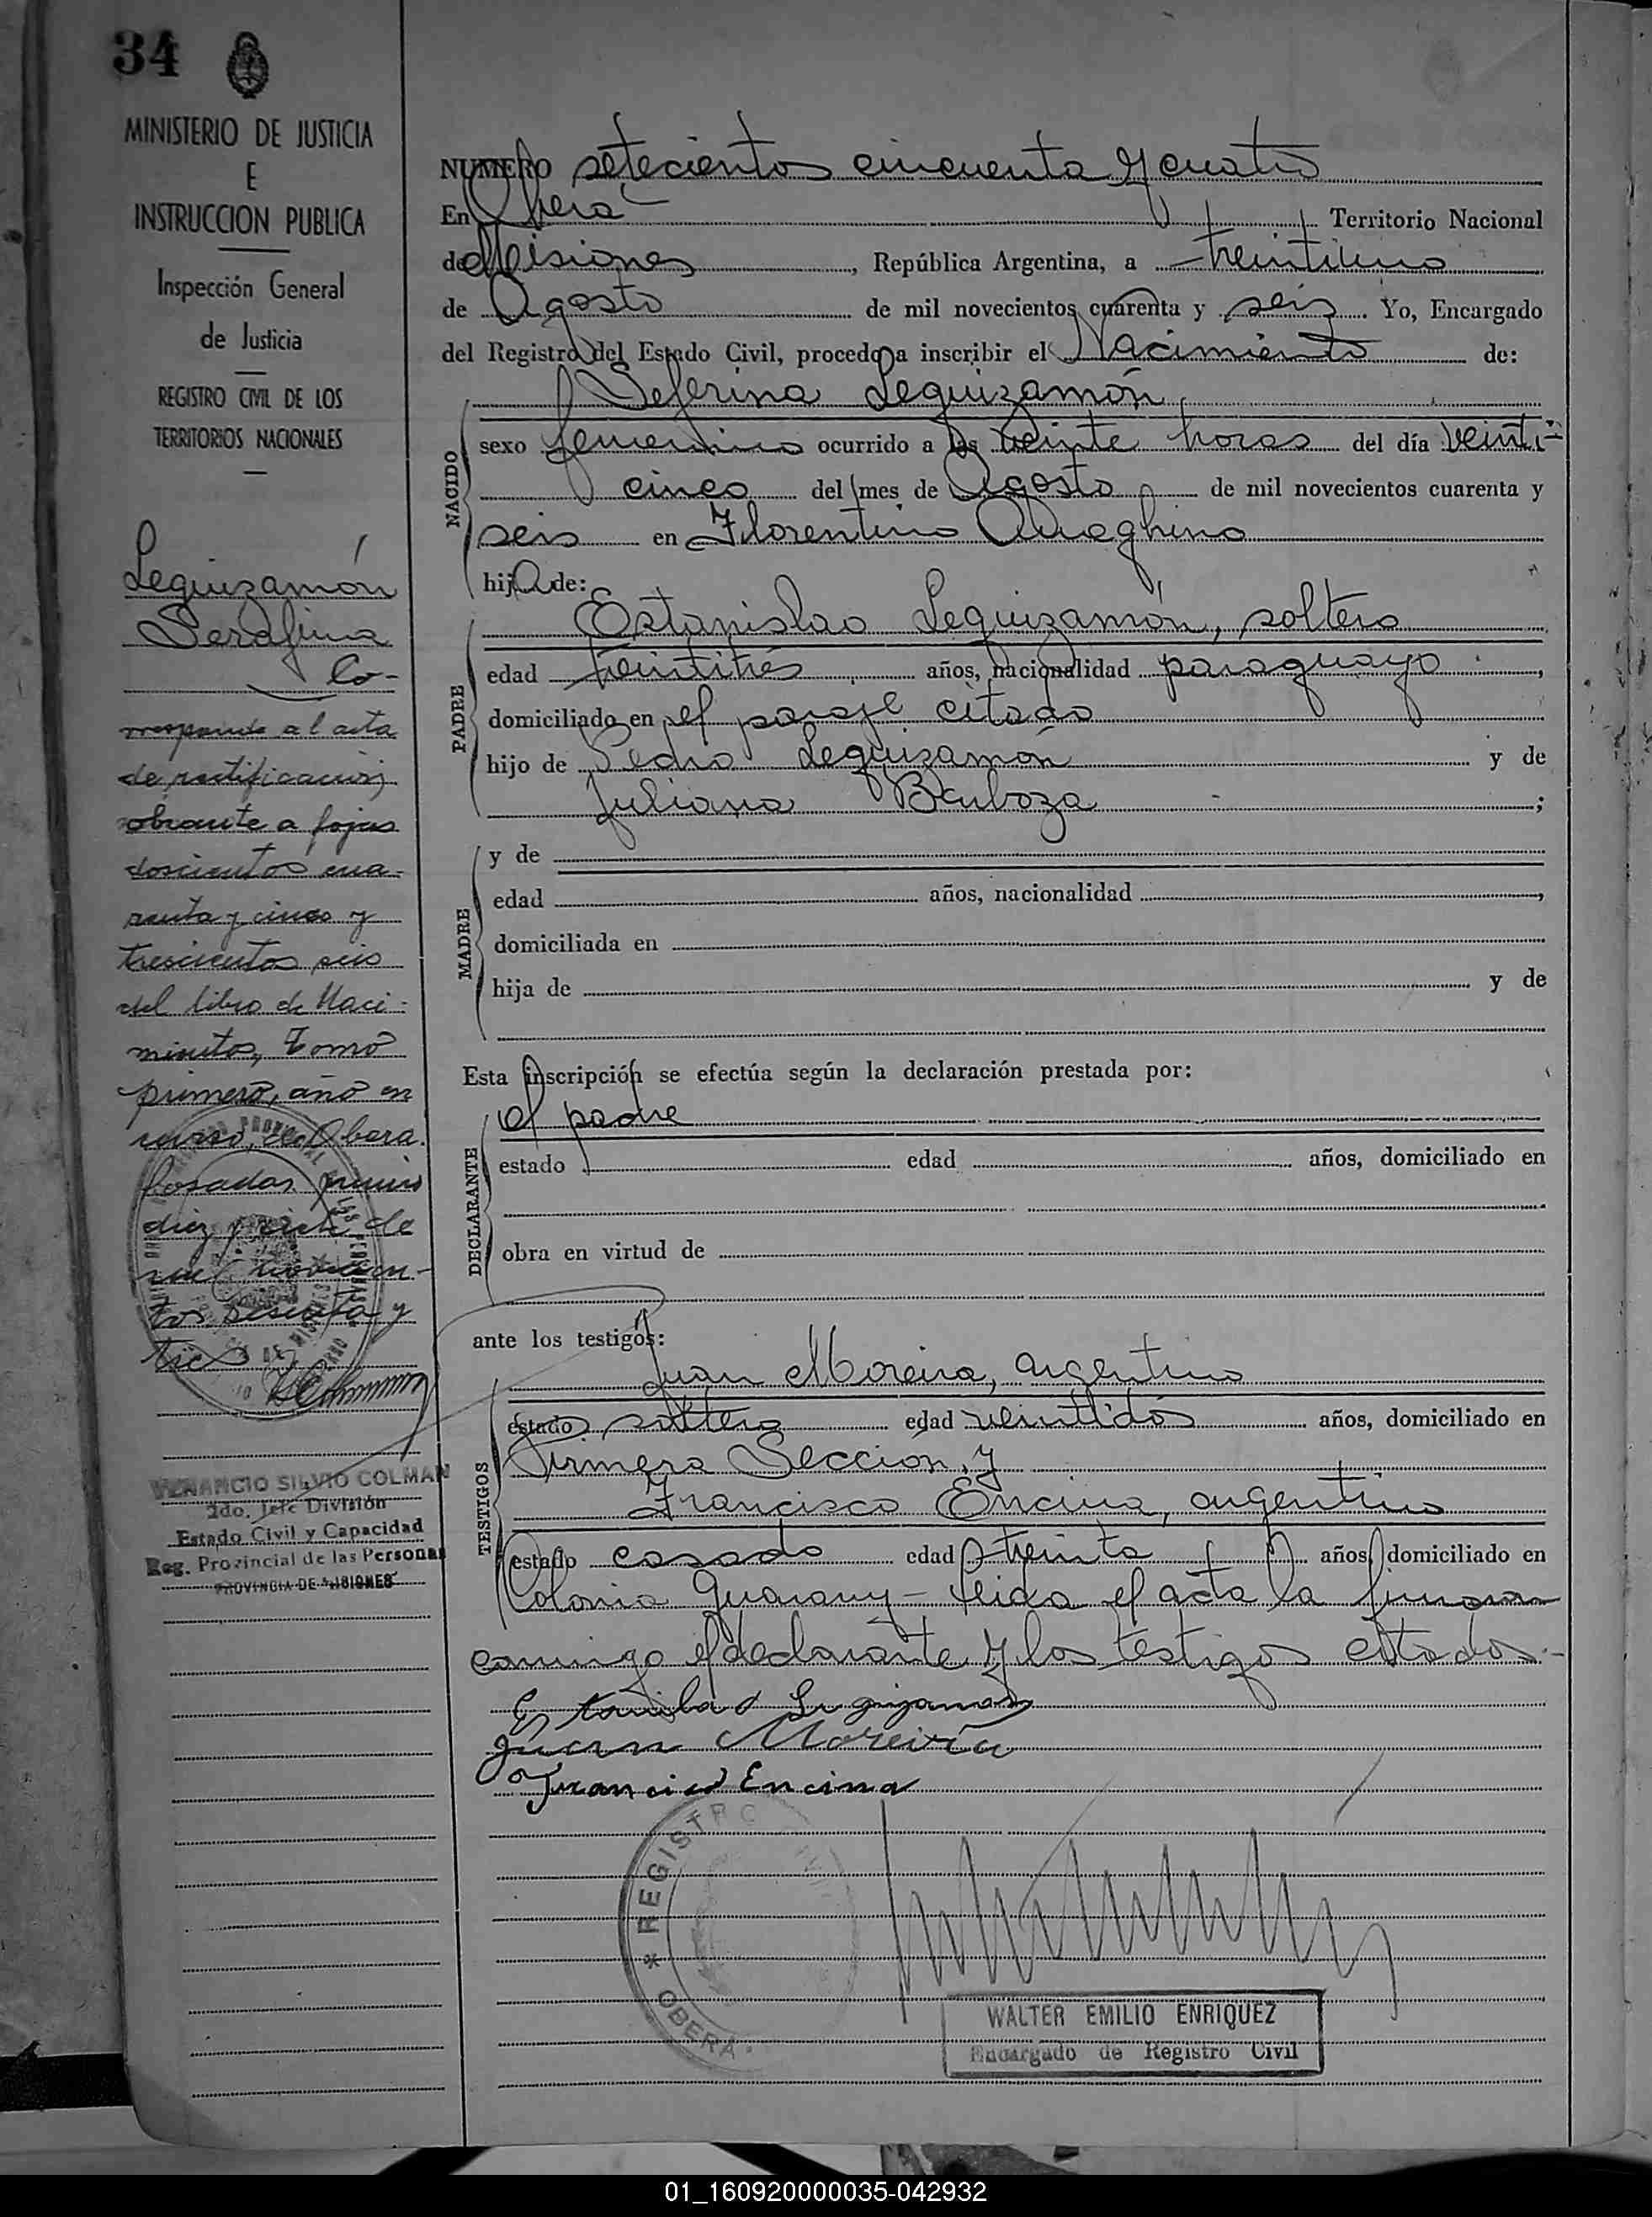 34
MINISTERIO DE JUSTICIA
E
INSTRUCCION PUBLICA
Inspección General
de Justicia
REGISTRO CIVIL DE LOS
TERRITORIOS NACIONALES
Leguizamón
Serafina
Co-
rresponde al acta
de rectificación
obrante a fojas
doscientos cua-
renta y cinco y
trescientos seis
del libro de Naci-
mientos, Tomo
primero, año en
curso, de Obera.
Posadas, junio
diez y siete de
mil novecien-
tos sesenta y
tres
VENANCIO SILVIO COLMAN
2do. Jefe División
Estado Civil y Capacidad
Reg. Provincial de las Personas
PROVINCIA DE MISIONES
NUMERO setecientos cincuenta y cuatro
En Obera Territorio Nacional
de Misiones, República Argentina, a treintiuno
de Agosto de mil novecientos cuarenta y seis. Yo, Encargado
del Registro del Estado Civil, procedo a inscribir el Nacimiento de:
Seferina Leguizamón
NACIDO
sexo femenino ocurrido a las veinte horas del día veinti-
cinco del mes de Agosto de mil novecientos cuarenta y
seis en Florentino Ameghino
hija de:
PADRE
Estanislao Leguizamón, soltero
edad treintitrés años, nacionalidad paraguayo,
domiciliado en el paraje citado
hijo de Pedro Leguizamón y de
Juliana Barboza;
MADRE
y de
edad años, nacionalidad,
domiciliada en
hija de y de
Esta inscripción se efectúa según la declaración prestada por:
DECLARANTE
el padre
estado edad años, domiciliado en
obra en virtud de
ante los testigos:
TESTIGOS
Juan Moreira, argentino
estado soltero edad veintidós años, domiciliado en
Primera Sección, y
Francisco Encina, argentino
estado casado edad treinta años, domiciliado en
Colonia Guarany - Leida el acta la firmaron
conmigo el declarante y los testigos citados.-
Juan Moreira
Francisco Encina
REGISTRO CIVIL
* OBERA.
WALTER EMILIO ENRIQUEZ
Encargado de Registro Civil
01_160920000035-042932